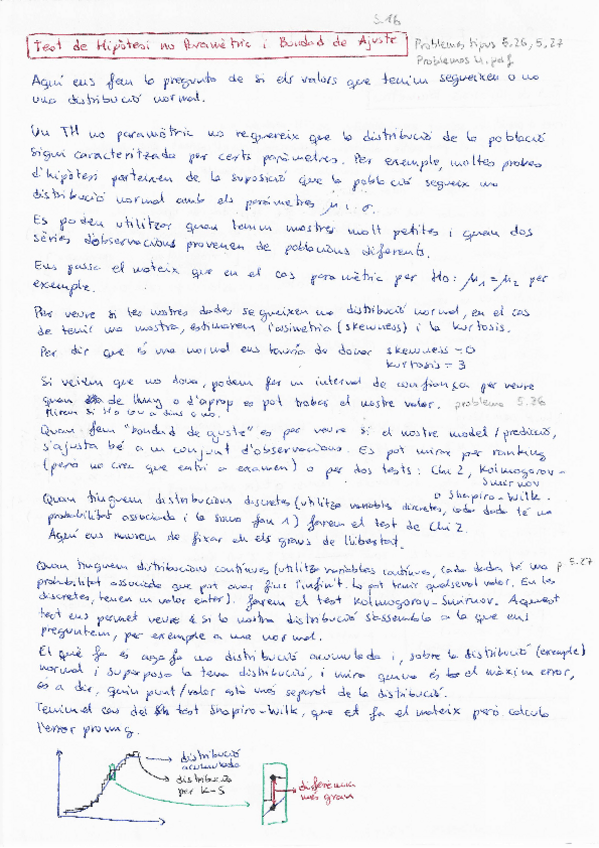 5.16
Test de Hipòtesi no Paramètric i Bondad de Ajuste
Problemes tipus 5.26, 5.27
Problemas U.pdf
Aquí ens fem la pregunta de si els valors que tenim segueixen o no
una distribució normal.
Un TH no paramètric no requereix que la distribució de la població
sigui caracteritzada per certs paràmetres. Per exemple, moltes probes
d'hipòtesi parteixen de la suposició que la població segueix una
distribució normal amb els paràmetres μ i σ.
Es poden utilitzar quan tenim mostres molt petites i quan dos
sèries d'observacions provenen de poblacions diferents.
Ens passa el mateix que en el cas paramètric per H0: μ1=μ2 per
exemple.
Per veure si les nostres dades segueixen una distribució normal, en el cas
de tenir una mostra, estimarem l'asimetria (skewness) i la kurtosis.
Per dir que és una normal ens hauria de donar skewness=0
kurtosis=3
Si veiem que no dona, podem fer un interval de confiança per veure
quan de lluny o d'aprop es pot trobar el nostre valor. problema 5.26
Mirem si
Quan fem "bondad de ajuste" es per veure si el nostre model/predicció,
s'ajusta bé a un conjunt d'observacions. Es pot mirar per ranking
(però no crec que entri a examen) o per dos tests: Chi 2, Kolmogorov-
Smirnov
o Shapiro-Wilk.
Quan tinguem distribucions discretes (utilitza variables discretes, cada dada té una
probabilitat associada i la suma fan 1) farem el test de Chi 2.
Aquí ens haurem de fixar en els graus de llibertat.
Quan tinguem distribucions contínues (utilitza variables contínues, cada dada té una p 5.27
probabilitat associada que pot anar fins l'infinit. Lo pot tenir qualsevol valor. En les
discretes, tenen un valor enter). farem el test Kolmogorov-Smirnov. Aquest
test ens permet veure si la nostra distribució s'assembla a la que ens
preguntem, per exemple a una normal.
El què fa és agafa una distribució acumulada i, sobre la distribució (exemple)
normal i superposa la teva distribució, i mira quina és el màxim error,
és a dir, quin punt/valor està més separat de la distribució.
Tenim el cas del test Shapiro-Wilk, que et fa el mateix però calcula
l'error promig.
distribució
acumulada
distribució
per K-S
diferència
més gran